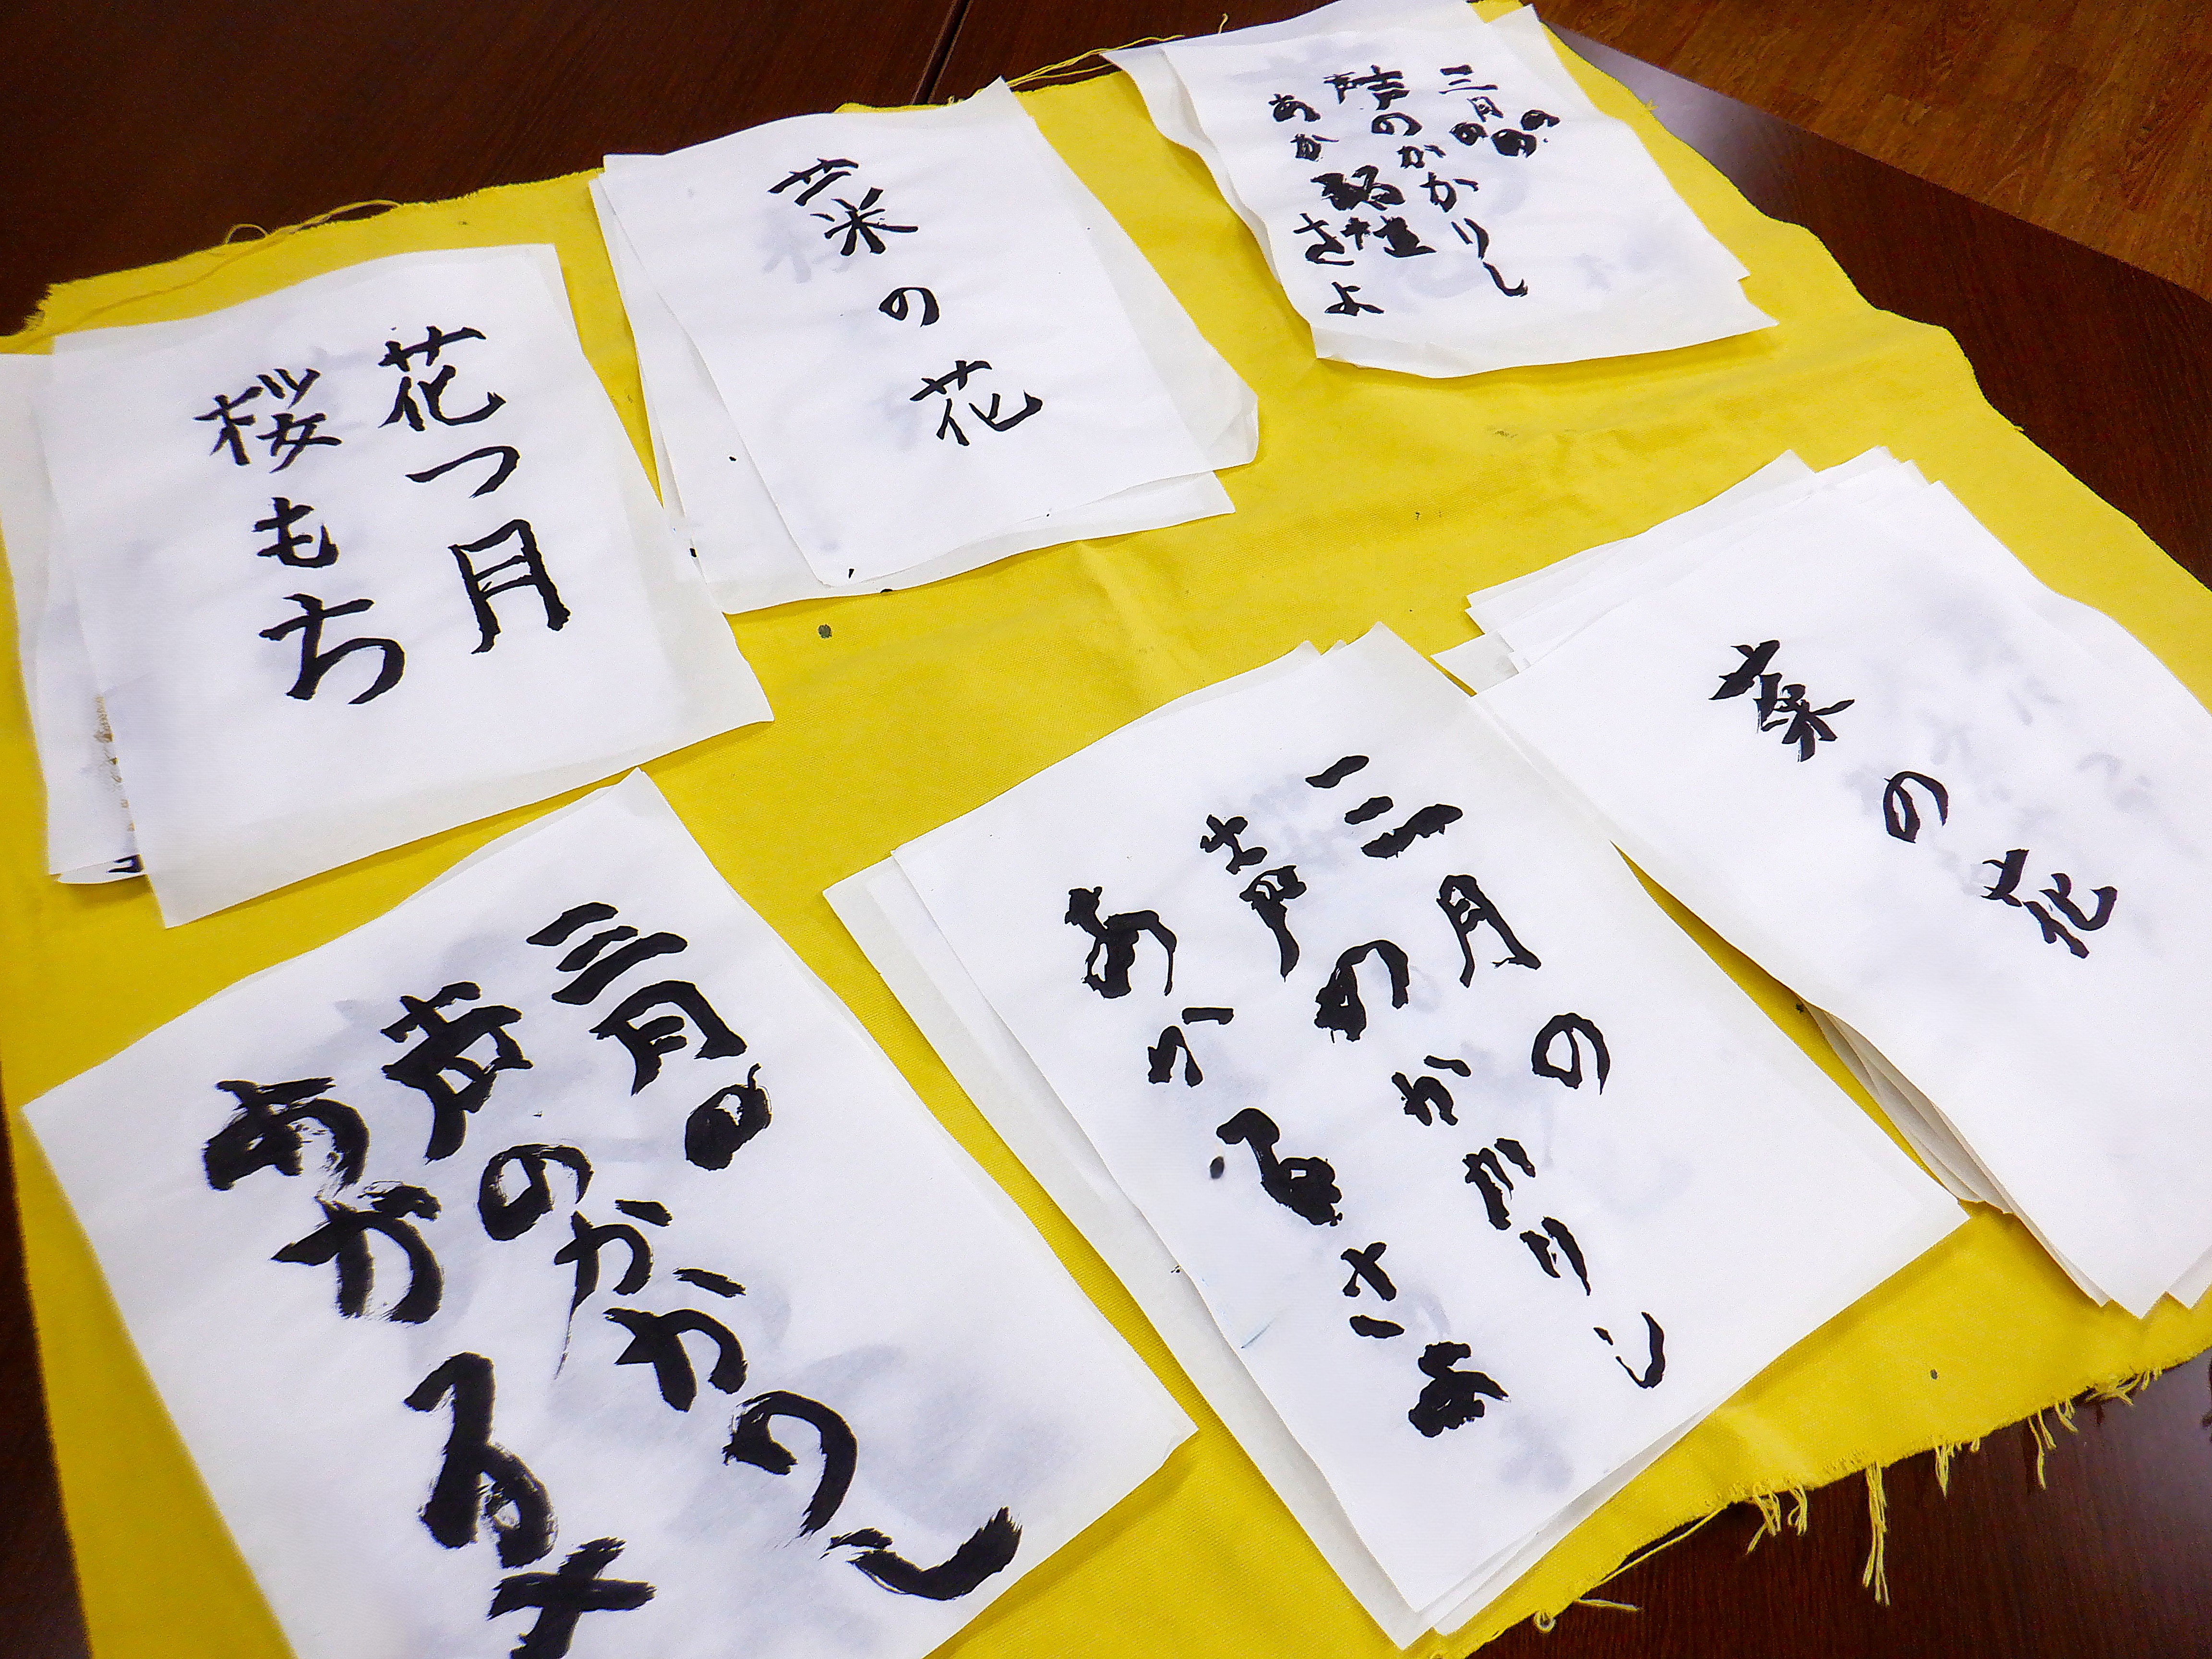 花つ月
桜もち
菜の花
三月の
声のかかりし
あか
さよ
三月の
声のかかりし
あかるさ
三月の
声のかかりし
あかるさ
菜の花